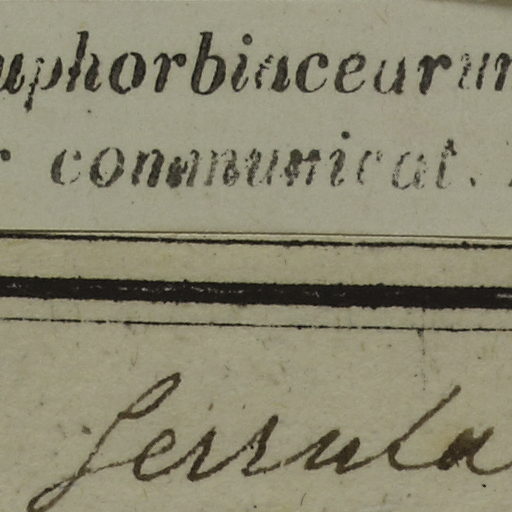 uphorbiacearum
r communicat.
serrula